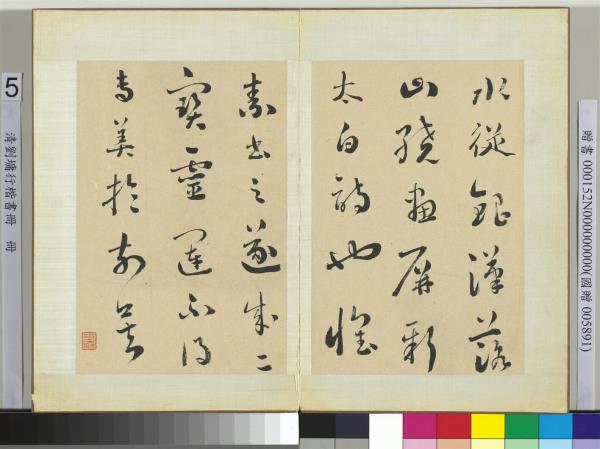 水從銀漢落
山繞畫屏新
太白詩也懷
素書之遂成二
寶靈運不得
專美於前矣
贈書 000152N000000000(國贈 005891)
5
清劉墉行楷書冊 冊